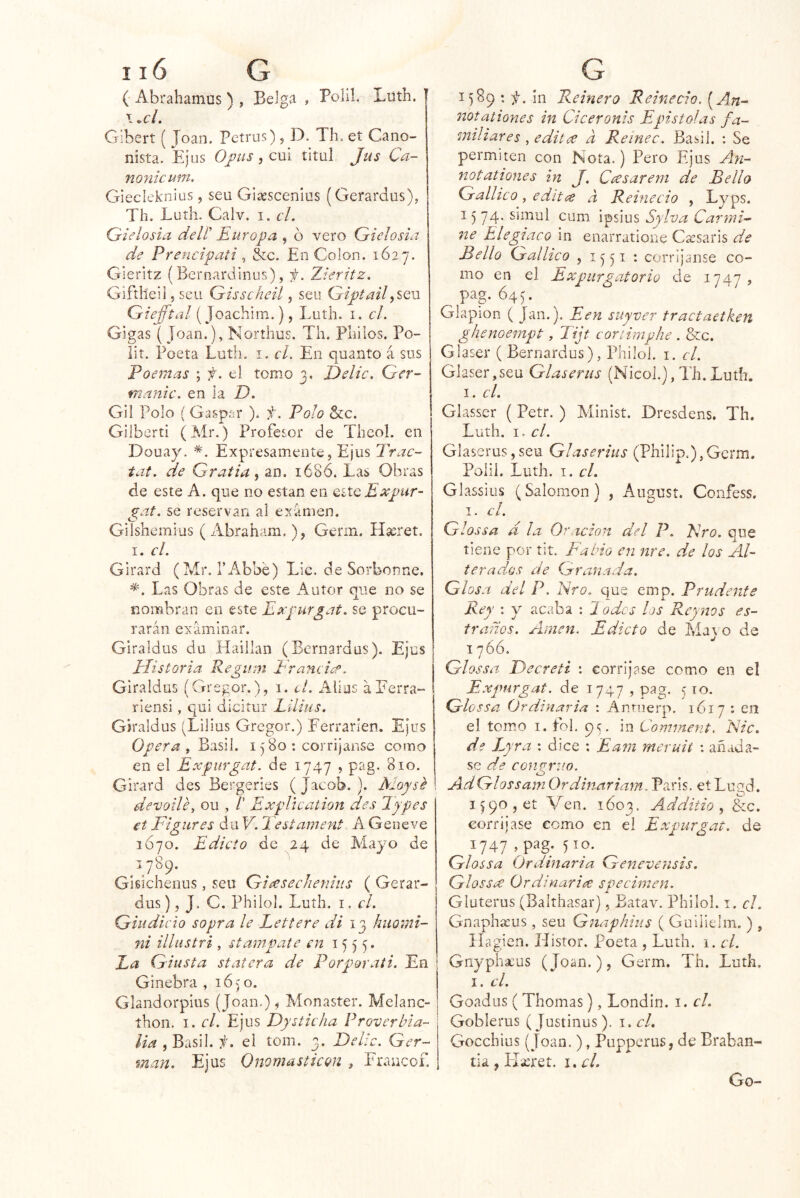 116 G
( Abrahamus ) , Belga , Polil. Luth.
1. cl.
Gibert ( Joan. Petrus) , D. Th. et Cano-
nista. Ejus Opus , cui titul Jus Ca-
nonicum.
Giecleknius , seu Giæscenius ( Gerardus),
Th. Luth. Calv. 1. cl.
Gielosia dell' Europa , ò vero Gielosia
de Prencipati , &c. En Colon. 1627.
Gieritz ( Bernardinus), ℣. Zieritz.
Giftheil, seu Gisscheil , seu Giptail, seu
Giefftal ( Joachim. ) , Luth. 1. cl.
Gigas ( Joan. ), Northus. Th. Philos. Po-
lit. Poeta Luth. 1. cl. En quanto á sus
Poemas ; ℣. el tomo 3. Delic. Ger-
manic. en la D.
Gil Polo ( Gaspar ). ℣. Polo &c.
Gilberti ( Mr.) Profesor de Theol. en
Douay. *. Expresamente, Ejus Trac-
tat. de Gratia , an. 1686. Las Obras
de este A. que no estan en este Expur-
gat. se reservan al exâmen.
Gilshemius ( Abraham. ), Germ. Hæret.
1. cl.
Girard ( Mr. l'Abbè) Lic. de Sorbonne.
*. Las Obras de este Autor que no se
nombran en este Expurgat. se procu-
rarán exâminar.
Giraldus du Haillan (Bernardus). Ejus
Historia Regum Franciæ.
Giraldus ( Gregor. ), 1. cl. Alius à Ferra-
riensi , qui dicitur Lilius.
Giraldus (Lilius Gregor.) Ferrarien. Ejus
Opera , Basil. 1580 : corrijanse como
en el Expurgat. de 1747 , pag. 810.
Girard des Bergeries ( Jacob. ). Moysè
devoilè, ou , l' Explication des Types
et Figures du V. Testament. A Geneve
1670. Edicto de 24 de Mayo de
1789.
Gisichenus , seu Giæsechenius ( Gerar-
dus ) , J. C. Philol. Luth. 1. cl.
Giudicio sopra le Lettere di 13 huomi-
ni illustri , stampate en 1555.
La Giusta statera de Porporati. En
Ginebra , 1650.
Glandorpius (Joan.) , Monaster. Melanc-
thon. 1. cl. Ejus Dysticha Proverbia-
lia , Basil. ℣. el tom. 3. Delic. Ger-
man. Ejus Onomasticon , Francof.
G
1589 : ℣. in Reinero Reinecio. ( An-
notationes in Ciceronis Epistolas fa-
miliares , editæ à Reinec. Basil. : Se
permiten con Nota. ) Pero Ejus An-
notationes in J. Cæsarem de Bello
Gallico , editæ à Reinecio , Lyps.
1574. simul cum ipsius Sylva Carmi-
ne Elegiaco in enarratione Cæsaris de
Bello Gallico , 1551 : corrijanse co-
mo en el Expurgatorio de 1747 ,
pag. 645.
Glapion ( Jan.). Een suyver tractaetken
ghenoempt , Tijt cortimphe . &c.
Glaser ( Bernardus ) , Philol. 1. cl.
Glaser, seu Glaserus (Nicol.), Th. Luth.
1. cl.
Glasser ( Petr. ) Minist. Dresdens. Th.
Luth. 1. cl.
Glaserus, seu Glaserius (Philip.), Germ.
Polil. Luth. 1. cl.
Glassius ( Salomon ) , August. Confess.
1. cl.
Glossa á la Oracion del P. Nro. que
tiene por tit. Fabio en nre. de los Al-
terados de Granada.
Glosa del P. Nro. que emp. Prudente
Rey : y acaba : Todos los Reynos es-
traños. Amen. Edicto de Mayo de
1766.
Glossa Decreti : corrijase como en el
Expurgat. de 1747 , pag. 510.
Glossa Ordinaria : Antuerp. 1617 : en
el tomo 1. fol. 95. in Comment. Nic.
de Lyra : dice : Eam meruit : añada-
se de congruo.
Ad Glossam Ordinariam. Paris. et Lugd.
1590 , et Ven. 1603. Additio , &c.
corrijase como en el Expurgat. de
1747 , pag. 510.
Glossa Ordinaria Genevensis.
Glossæ Ordinariæ specimen.
Gluterus (Balthasar) , Batav. Philol. 1. cl.
Gnaphæus , seu Gnaphius ( Guilielm. ) ,
Hagien. Histor. Poeta , Luth. 1. cl.
Gnyphæus ( Joan. ) , Germ. Th. Luth.
1. cl.
Goadus ( Thomas ) , Londin. 1. cl.
Goblerus ( Justinus ). 1. cl.
Gocchius ( Joan. ) , Pupperus, de Braban-
tia , Hæret. 1. cl.
Go-